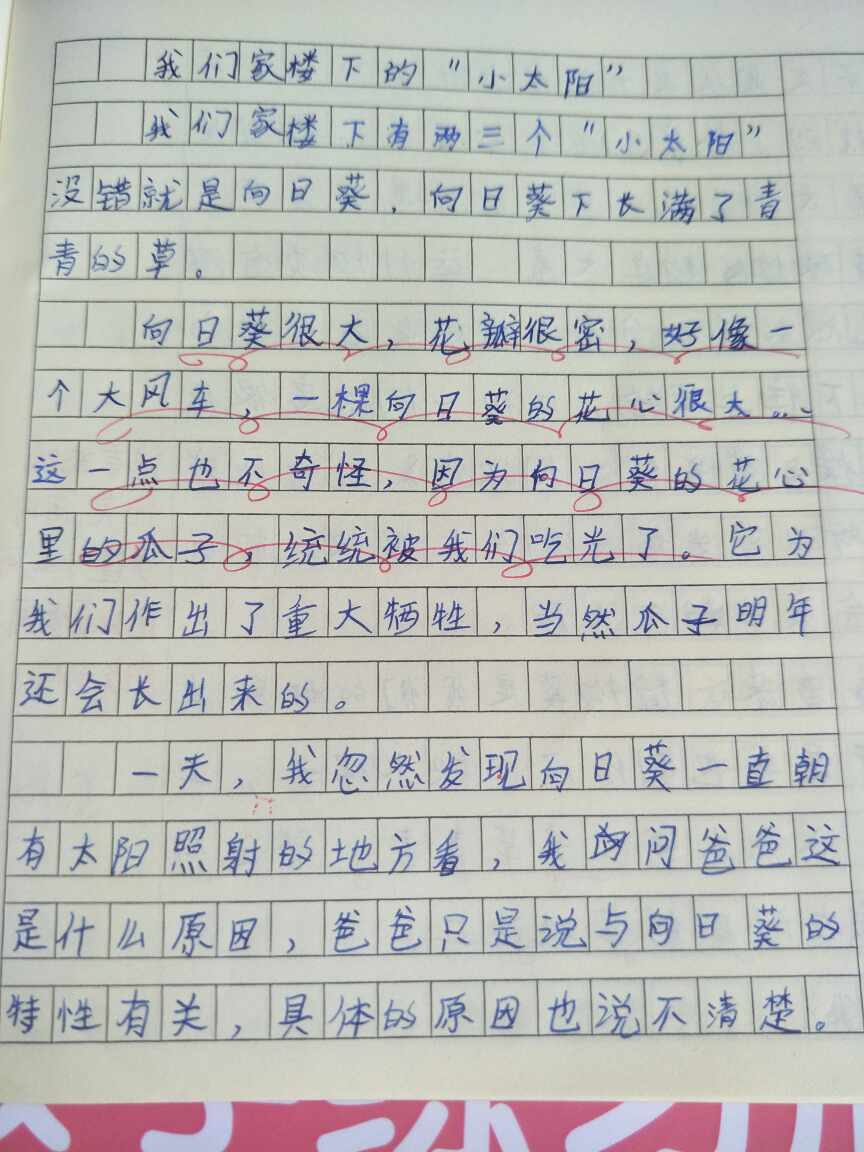 我们家楼下的“小太阳”
我们家楼下有两三个“小太阳”
没错就是向日葵，向日葵下长满了青
青的草。
向日葵很大，花瓣很密，好像一
个大风车，一棵向日葵的花心很大…
这一点也不奇怪，因为向日葵的花心
里的瓜子，统统被我们吃光了。它为
我们作出了重大牺牲，当然瓜子明年
还会长出来的。
一天，我忽然发现向日葵一直朝
有太阳照射的地方看，我问爸爸这
是什么原因，爸爸只是说与向日葵的
特性有关，具体的原因也说不清楚。